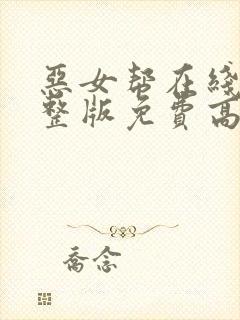 惡女幫在綫
整版免費高
喬念